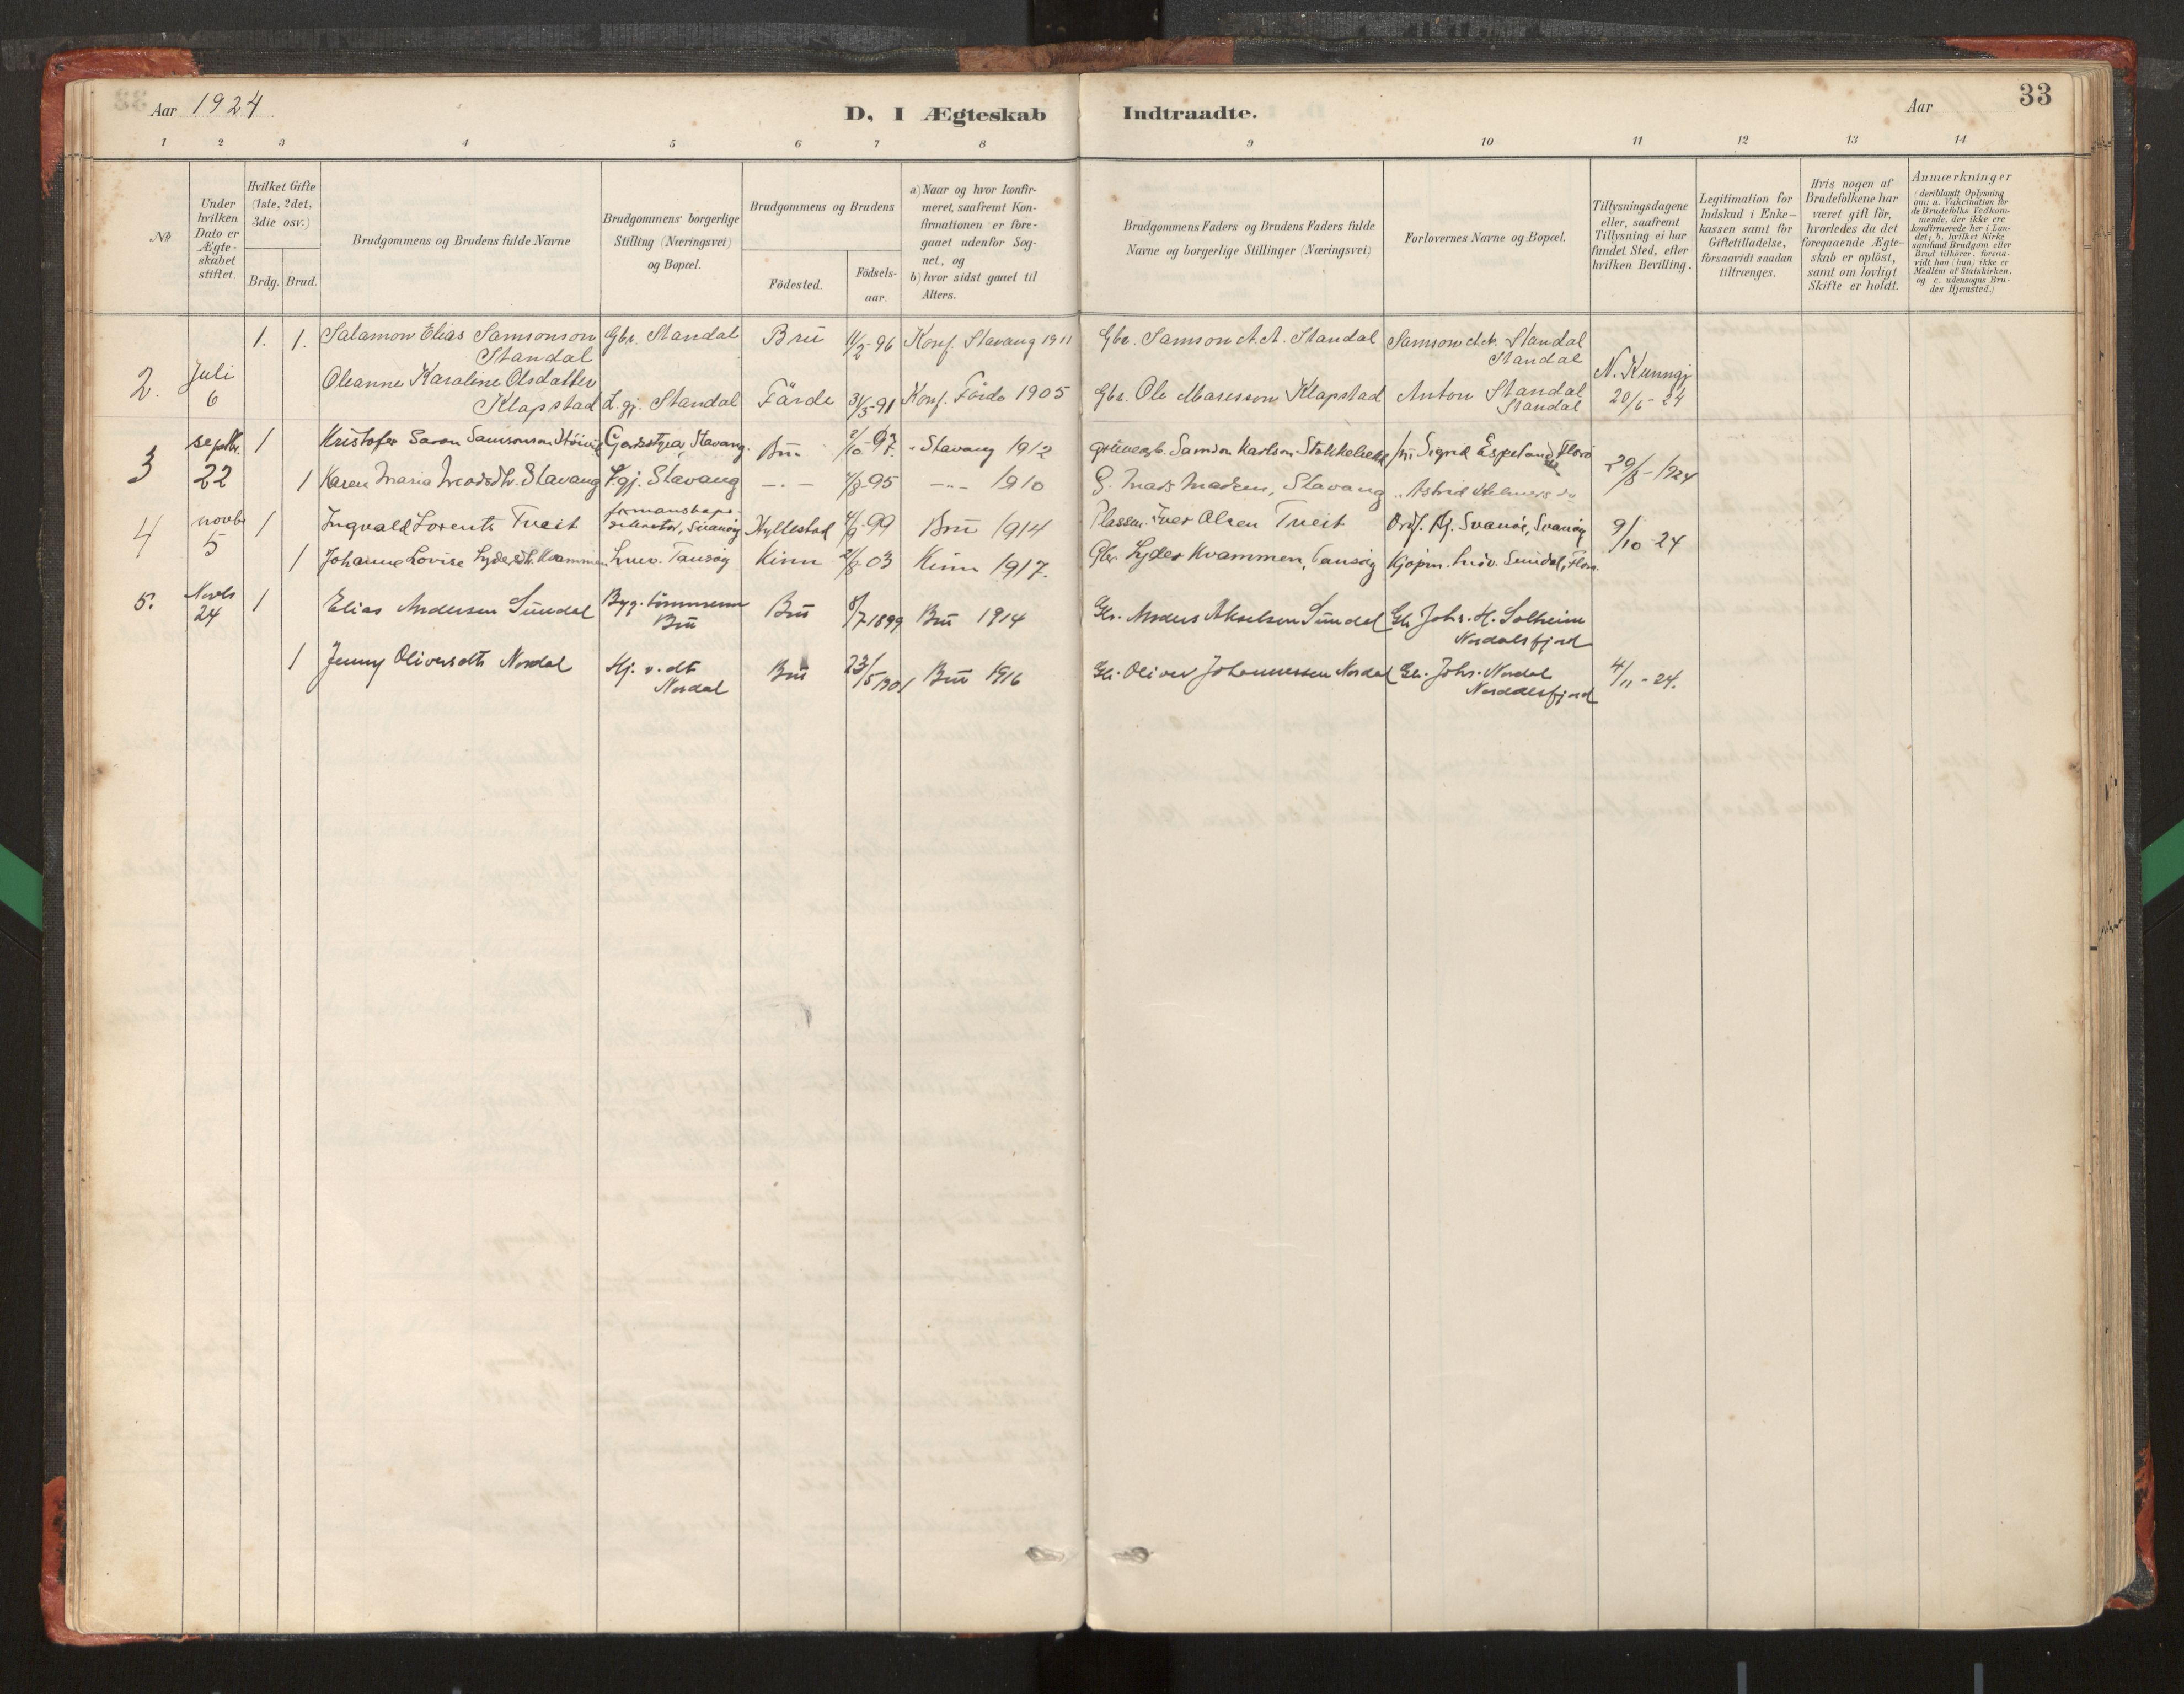 33
Aar 1924
D, I Ægteskab Indtraadte.
Aar
1 2 3 4 5 6 7 8 9 10 11 12 13 14
No
Under
hvilken
Dato er
Ægte-
skabet
stiftet.
Hvilket Gifte
(1ste, 2det,
3die osv.)
Brdg. Brud.
Brudgommens og Brudens fulde Navne
Brudgommens borgerlige
Stilling (Næringsvei)
og Bopæl.
Brudgommens og Brudens
Födested.
Födsels-
aar.
a) Naar og hvor konfir-
meret, saafremt Kon-
firmationen er fore-
gaaet udenfor Sog-
net, og
b) hvor sidst gaaet til
Alters.
Brudgommens Faders og Brudens Faders fulde
Navne og borgerlige Stillinger (Næringsvei)
Forlovernes Navne og Bopæl.
Tillysningsdagene
eller, saafremt
Tillysning ei har
fundet Sted, efter
hvilken Bevilling.
Legitimation for
Indskud i Enke-
kassen samt for
Giftetilladelse,
forsaavidt saadan
tiltrænges.
Hvis nogen af
Brudefolkene har
været gift för,
hvorledes da det
foregaaende Ægte-
skab er oplöst,
samt om lovligt
Skifte er holdt.
Anmærkninger
(deriblandt Oplysning
om: a. Vakcination for
de Brudefolks Vedkom-
mende, der ikke ere
konfirmerede her i Lan-
det; b. hvilket Kirke
samfund Brudgom eller
Brud tilhörer, forsaa-
vidt han (hun) ikke er
Medlem af Statskirken,
og c. udensogns Bru-
des Hjemsted.)
1. 1. Salamon Elias Samsonson Gbr. Standal Brü 11/2-96 Konf. Stavang 1911 Gbr. Samson A.A. Standal Samson A.A. Standal
Standal Standal
2. Juli 6 Oleanne Karaline Olsdatter N. Kunngj.
Klapstad L.gj. Standal Förde 31/3-91 Konf. Förde 1905 Gbr. Ole Maresson Klapstad Anton Standal 20/6-24
Standal
3 septbr. 1 Kristofer Samsonson Stavang. Brü 2/10-97. - Stavang 1912 Samson Karlson Sigrid Espeland Florö
22 1 Karen Maria Madsdtr. Stavang L.gj. Stavang -"- 4/8-95 -"- 1910 G. Mads Madsen, Stavang " Astrid 29/8-1924
4 novbr 1 Ingvald Lorents Tveit formanskaps-
sekretær, Svanöy Hyllestad 4/9-99 Brü 1914 Plassm. Iver Olsen Tveit Ordf. Kj. Svanöe, Svanöy 9/10-24
5 1 Johanne Lovise Lydersdtr. Kvammen Tansöy Kinn 2/8 03 Kinn 1917. Gbr. Lyder Kvammen, Tansöy Kjöpm. Ludv. Sundal, Florö.
5. Novbr 24 1 Elias Andersen Sundal Byg. tömmerm Brü 8/7 1899 Brü 1914 Gbr. Anders Akselsen Sundal Gbr Johs. H. Solheim
Brü Nordalsfjord
1 Jenny Oliversdtr Nordal Hj. v. dtr Brü 23/5 1901 Brü 1916 Gbr. Oliver Johannessen Nordal Gbr. Johs. Nordal 4/11-24.
Nordal Norddalsfjord